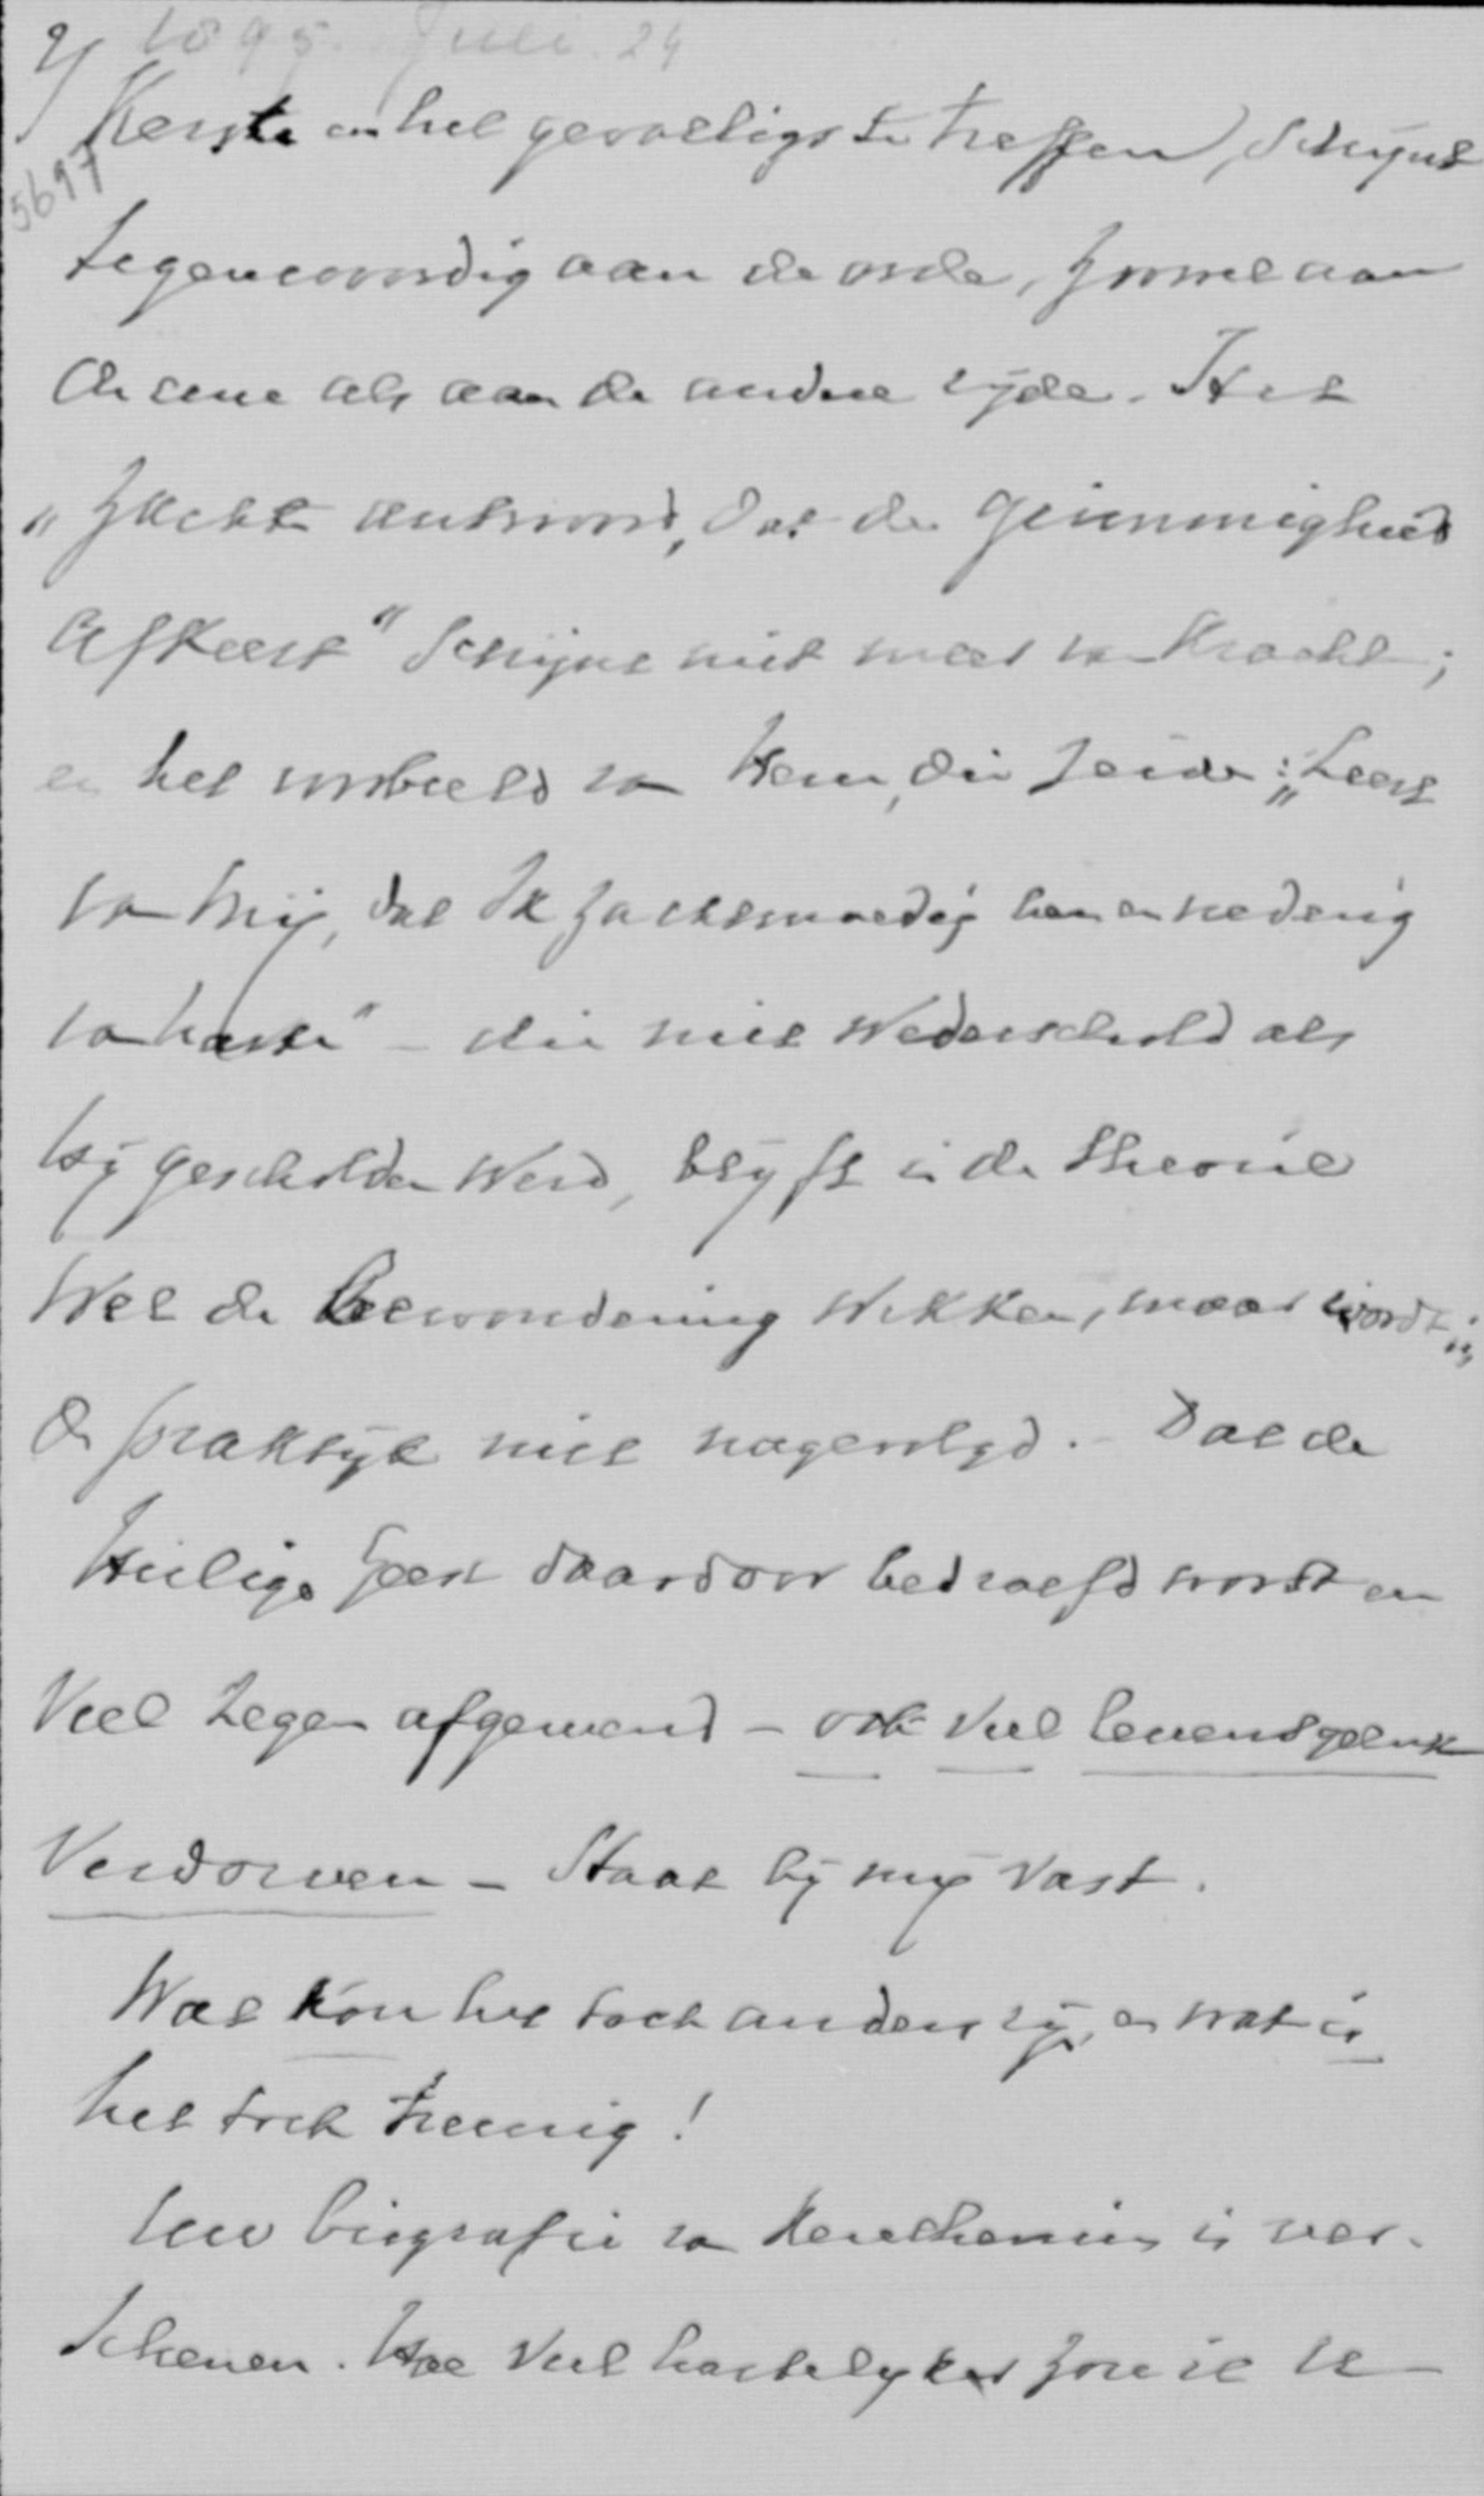 2/ 1895. Juli. 24
5697
Kerste en het gevoeligst te treffen, schijnt
tegenwoordig aan de orde, zoowel aan
de eene als aan de andere zijde. Het
„zacht antwoord, dat de grimmigheid
afkeert" schijnt niet meer van kracht;
en het voorbeeld van Hem, die zeide: „Leert
van Mij, dat Ik zachtmoedig ben en nederig
van harte" – die niet wederschold als
Hij gescholden werd, blijft in de theorie
wel de bewondering wekken, maar wordt in
de praktijk niet nagevolgd. – Dat de
Heilige Geest daardoor bedroefd wordt en
veel zegen afgewend – ook veel levensgeluk
verdorven – staat bij mij vast.
Wat kon het toch anders zijn, en wat is
het toch treurig!
Uw biografie van is ver-
schenen. Hoe veel hartelijker zou ik U